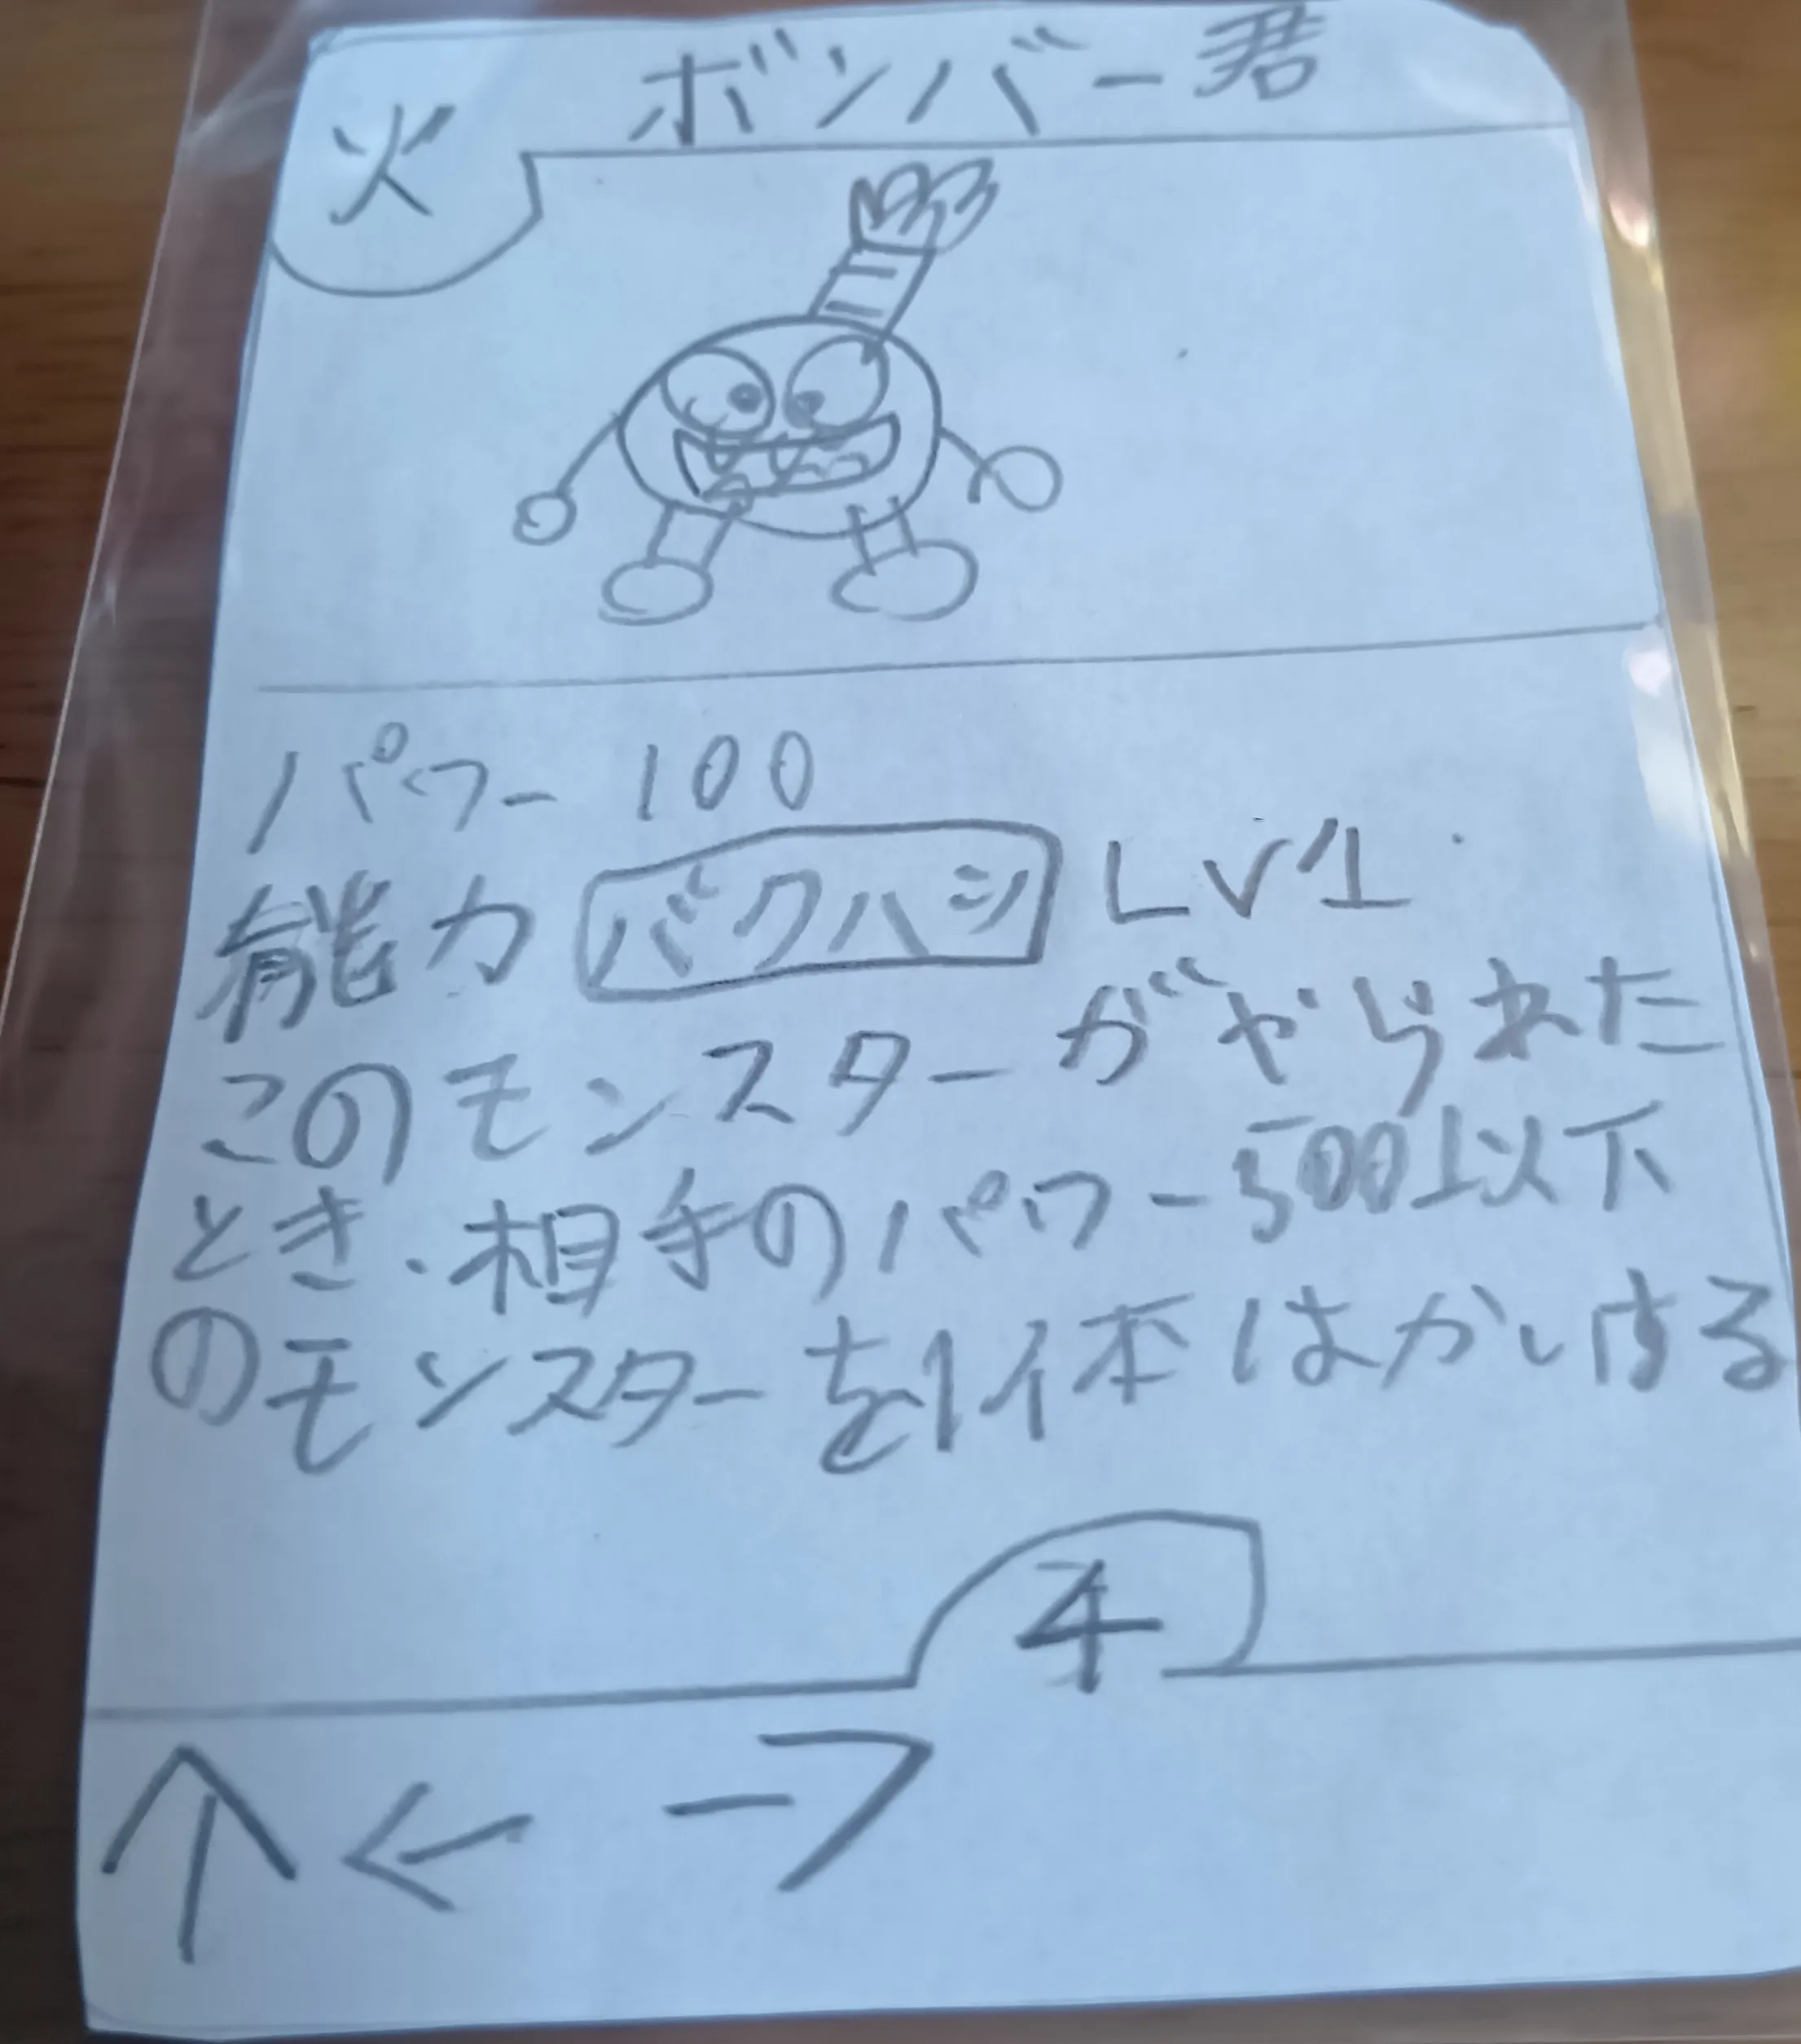 ボンバー君
火
パワー100
能力 バクハツ LV1
このモンスターがやられた
とき、相手のパワー500以下
のモンスターを1体はかいする
4
↑ ← →